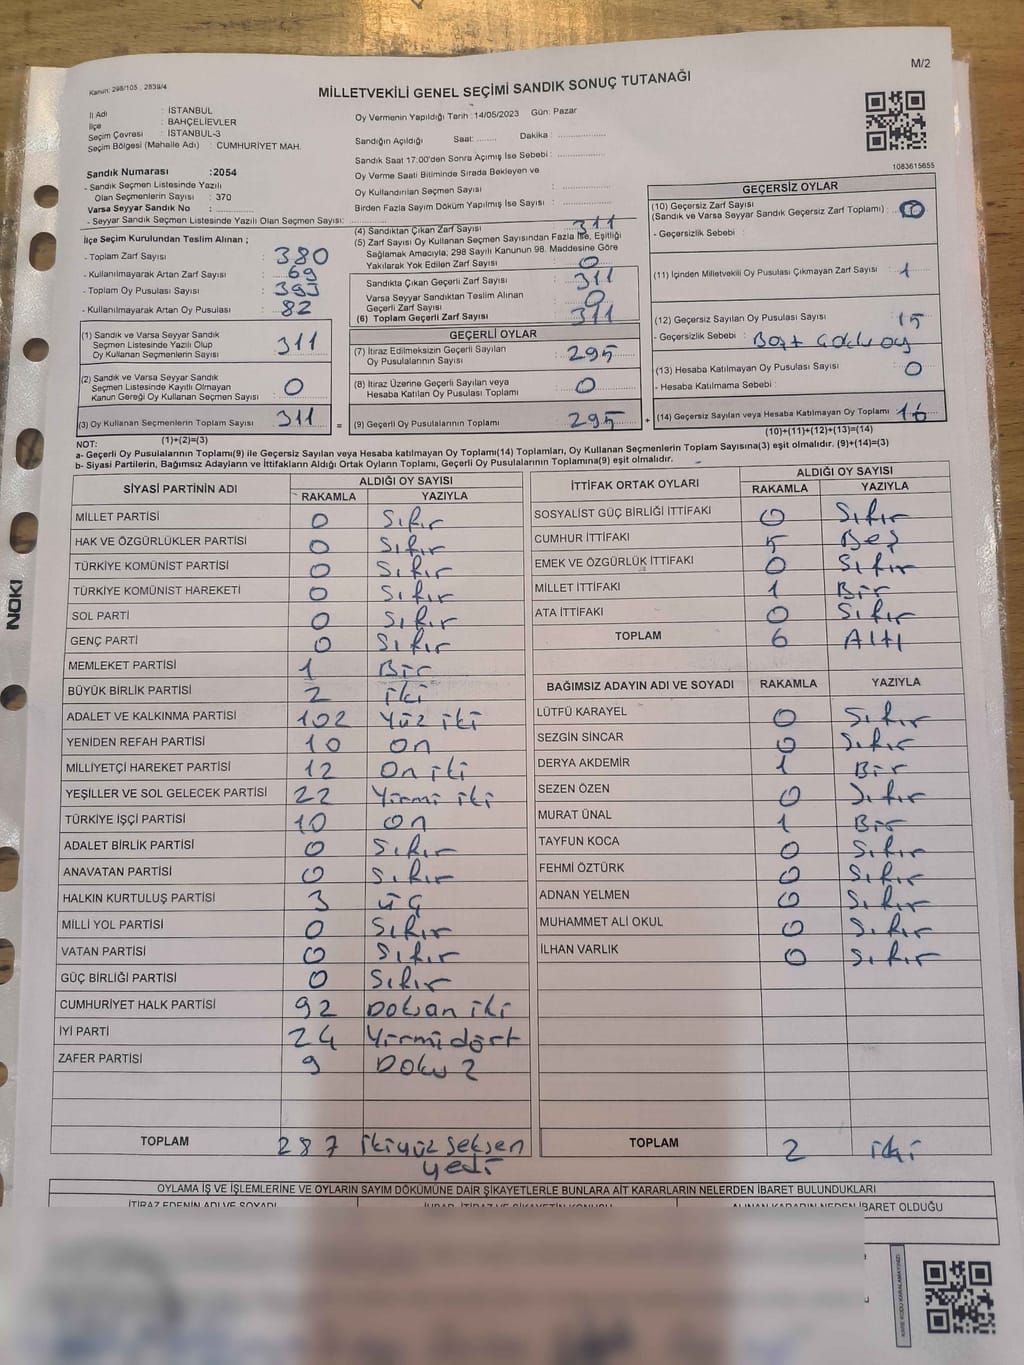 M/2
Kanun: 298/105 , 2839/4
MİLLETVEKİLİ GENEL SEÇİMİ SANDIK SONUÇ TUTANAĞI
İl Adı : İSTANBUL
İlçe : BAHÇELİEVLER
Seçim Çevresi : İSTANBUL-3
Seçim Bölgesi (Mahalle Adı) : CUMHURİYET MAH.
Sandık Numarası :2054
- Sandık Seçmen Listesinde Yazılı
Olan Seçmenlerin Sayısı : 370
Varsa Seyyar Sandık No :
- Seyyar Sandık Seçmen Listesinde Yazılı Olan Seçmen Sayısı:
Oy Vermenin Yapıldığı Tarih :14/05/2023 Gün: Pazar
Sandığın Açıldığı Saat: Dakika :
Sandık Saat 17:00'den Sonra Açımış İse Sebebi :
Oy Verme Saati Bitiminde Sırada Bekleyen ve
Oy Kullandırılan Seçmen Sayısı :
Birden Fazla Sayım Döküm Yapılmış İse Sayısı :
1083615655
İlçe Seçim Kurulundan Teslim Alınan ;
- Toplam Zarf Sayısı : 380
- Kullanılmayarak Artan Zarf Sayısı : 69
- Toplam Oy Pusulası Sayısı : 393
- Kullanılmayarak Artan Oy Pusulası : 82
(1) Sandık ve Varsa Seyyar Sandık
Seçmen Listesinde Yazılı Olup
Oy Kullanan Seçmenlerin Sayısı : 311
(2) Sandık ve Varsa Seyyar Sandık
Seçmen Listesinde Kayıtlı Olmayan
Kanun Gereği Oy Kullanan Seçmen Sayısı : 0
(3) Oy Kullanan Seçmenlerin Toplam Sayısı : 311
(1)+(2)=(3)
(4) Sandıktan Çıkan Zarf Sayısı : 311
(5) Zarf Sayısı Oy Kullanan Seçmen Sayısından Fazla İse, Eşitliği
Sağlamak Amacıyla, 298 Sayılı Kanunun 98. Maddesine Göre
Yakılarak Yok Edilen Zarf Sayısı : 0
Sandıkta Çıkan Geçerli Zarf Sayısı : 311
Varsa Seyyar Sandıktan Teslim Alınan
Geçerli Zarf Sayısı : 0
(6) Toplam Geçerli Zarf Sayısı : 311
GEÇERLİ OYLAR
(7) İtiraz Edilmeksizin Geçerli Sayılan
Oy Pusulalarının Sayısı : 295
(8) İtiraz Üzerine Geçerli Sayılan veya
Hesaba Katılan Oy Pusulası Toplamı : 0
= (9) Geçerli Oy Pusulalarının Toplamı : 295 +
GEÇERSİZ OYLAR
(10) Geçersiz Zarf Sayısı
(Sandık ve Varsa Seyyar Sandık Geçersiz Zarf Toplamı) : 0
- Geçersizlik Sebebi :
(11) İçinden Milletvekili Oy Pusulası Çıkmayan Zarf Sayısı : 1
(12) Geçersiz Sayılan Oy Pusulası Sayısı : 15
- Geçersizlik Sebebi : Boş+ Çoklu oy
(13) Hesaba Katılmayan Oy Pusulası Sayısı : 0
- Hesaba Katılmama Sebebi :
(14) Geçersiz Sayılan veya Hesaba Katılmayan Oy Toplamı : 16
(10)+(11)+(12)+(13)=(14)
NOT:
a- Geçerli Oy Pusulalarının Toplamı(9) ile Geçersiz Sayılan veya Hesaba katılmayan Oy Toplamı(14) Toplamları, Oy Kullanan Seçmenlerin Toplam Sayısına(3) eşit olmalıdır. (9)+(14)=(3)
b- Siyasi Partilerin, Bağımsız Adayların ve İttifakların Aldığı Ortak Oyların Toplamı, Geçerli Oy Pusulalarının Toplamına(9) eşit olmalıdır.
SİYASİ PARTİNİN ADI ALDIĞI OY SAYISI
RAKAMLA YAZIYLA
MİLLET PARTİSİ 0 Sıfır
HAK VE ÖZGÜRLÜKLER PARTİSİ 0 Sıfır
TÜRKİYE KOMÜNİST PARTİSİ 0 Sıfır
TÜRKİYE KOMÜNİST HAREKETİ 0 Sıfır
SOL PARTİ 0 Sıfır
GENÇ PARTİ 0 Sıfır
MEMLEKET PARTİSİ 1 Bir
BÜYÜK BİRLİK PARTİSİ 2 iki
ADALET VE KALKINMA PARTİSİ 102 Yüz iki
YENİDEN REFAH PARTİSİ 10 On
MİLLİYETÇİ HAREKET PARTİSİ 12 On iki
YEŞİLLER VE SOL GELECEK PARTİSİ 22 Yirmi iki
TÜRKİYE İŞÇİ PARTİSİ 10 On
ADALET BİRLİK PARTİSİ 0 Sıfır
ANAVATAN PARTİSİ 0 Sıfır
HALKIN KURTULUŞ PARTİSİ 3 üç
MİLLİ YOL PARTİSİ 0 Sıfır
VATAN PARTİSİ 0 Sıfır
GÜÇ BİRLİĞİ PARTİSİ 0 Sıfır
CUMHURİYET HALK PARTİSİ 92 Doksan iki
İYİ PARTİ 24 Yirmi dört
ZAFER PARTİSİ 9 Dokuz
TOPLAM 287 ikiyüz seksen
yedi
İTTİFAK ORTAK OYLARI ALDIĞI OY SAYISI
RAKAMLA YAZIYLA
SOSYALİST GÜÇ BİRLİĞİ İTTİFAKI 0 Sıfır
CUMHUR İTTİFAKI 5 Beş
EMEK VE ÖZGÜRLÜK İTTİFAKI 0 Sıfır
MİLLET İTTİFAKI 1 Bir
ATA İTTİFAKI 0 Sıfır
TOPLAM 6 Altı
BAĞIMSIZ ADAYIN ADI VE SOYADI RAKAMLA YAZIYLA
LÜTFÜ KARAYEL 0 Sıfır
SEZGİN SİNCAR 0 Sıfır
DERYA AKDEMİR 1 Bir
SEZEN ÖZEN 0 Sıfır
MURAT ÜNAL 1 Bir
TAYFUN KOCA 0 Sıfır
FEHMİ ÖZTÜRK 0 Sıfır
ADNAN YELMEN 0 Sıfır
MUHAMMET ALİ OKUL 0 Sıfır
İLHAN VARLIK 0 Sıfır
TOPLAM 2 iki
OYLAMA İŞ VE İŞLEMLERİNE VE OYLARIN SAYIM DÖKÜMÜNE DAİR ŞİKAYETLERLE BUNLARA AİT KARARLARIN NELERDEN İBARET BULUNDUKLARI
İTİRAZ EDENİN ADI VE SOYADI
ALINAN KARARIN NEDEN İBARET OLDUĞU
KARE KODU KARALAMAYINIZ!
NOKI